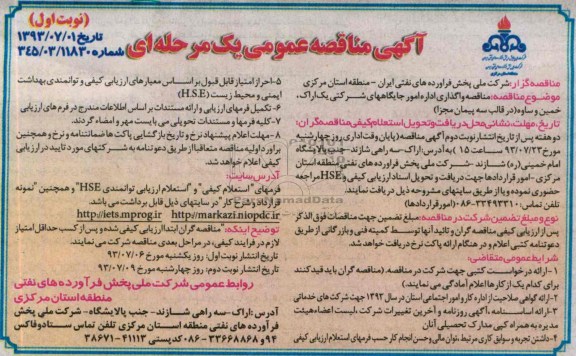 (نوبت اول)
تاریخ ۱۳۹۳/۰۷/۰۱
شماره ۳۴۵/۰۳/۱۱۸۳۰
آگهی مناقصه عمومی یک مرحله‌ای
مناقصه‌گزار: شرکت ملی پخش فرآورده های نفتی ایران - منطقه استان مرکزی
موضوع مناقصه: مناقصه واگذاری اداره امور جایگاههای شرکتی یک اراک،
خمین و ساوه (در قالب سه پیمان مجزا)
تاریخ، مهلت، نشانی محل دریافت و تحویل استعلام کیفی مناقصه‌گران:
دو هفته پس از تاریخ انتشار نوبت دوم آگهی مناقصه (پایان وقت اداری روز چهارشنبه
مورخ ۹۳/۰۷/۲۳ ساعت ۱۵) به آدرس: اراک-سه راهی شازند- جنب پالایشگاه
امام خمینی (ره) شازند -شرکت ملی پخش فرآورده های نفتی منطقه استان
مرکزی - امور قراردادها جهت دریافت و تحویل اسناد ارزیابی کیفی و HSE مراجعه
حضوری نموده و یا از طریق سایتهای مشروحه ذیل دریافت نمایند.
تلفن تماس: ۳۳۴۹۳۳۱۰-۰۸۶ (امور قراردادها)
نوع و مبلغ تضمین شرکت در مناقصه: مبلغ تضمین جهت مناقصات فوق الذکر
پس از ارزیابی کیفی مناقصه گران و تائید آنها توسط کمیته فنی و بازرگانی از طریق
دعوتنامه کتبی اعلام و در هنگام ارائه پاکات نرخ دریافت خواهد شد.
شرایط عمومی متقاضی:
۱-ارائه درخواست کتبی جهت شرکت در مناقصه. (مناقصه گران باید قید کنند
برای کدام یک از کارها اعلام آمادگی می نمایند.)
۲-ارائه گواهی صلاحیت از اداره کار و امور اجتماعی استان در سال ۱۳۹۳ جهت شرکت های خدماتی
۳- ارائه اساسنامه، آگهی روزنامه و آخرین تغییرات شرکت، لیست اعضاء هیئت
مدیره به همراه کپی مدارک تحصیلی آنان
۴-داشتن تجربه و سوابق کاری مرتبط، توان مالی و حسن انجام کار حسب فرمهای استعلام ارزیابی کیفی
۵-احراز امتیاز قابل قبول بر اساس معیارهای ارزیابی کیفی و توانمندی بهداشت
ایمنی و محیط زیست (H.S.E)
۶-تکمیل فرمهای ارزیابی و ارائه مستندات بر اساس اطلاعات مندرج در فرم های ارزیابی
۷-کلیه فرمها و مستندات تحویلی می بایست مهر و امضاء گردند.
۸-مهلت اعلام پیشنهاد نرخ و تاریخ بازگشایی پاکت ها ضمانتنامه و نرخ و همچنین
برآورد اولیه مناقصه متعاقبا از طریق دعوتنامه به شرکتهای مورد تایید در ارزیابی
کیفی اعلام خواهد شد.
آدرس سایت:
فرمهای "استعلام کیفی" و "استعلام ارزیابی توانمندی HSE" و همچنین "نمونه
قرارداد و شرح کار" در سایتهای ذیل قابل برداشت می باشد.
http://iets.mporg.ir http://markazi.niopdc.ir
توضیح اینکه: "مناقصه گران ابتدا ارزیابی کیفی شده و پس از کسب حداقل امتیاز
لازم در فرآیند کیفی، در مراحل بعدی مناقصه شرکت می نمایند.
تاریخ انتشار نوبت اول: روز یکشنبه مورخ ۹۳/۰۷/۰۶
تاریخ انتشار نوبت دوم: روز چهارشنبه مورخ ۹۳/۰۷/۰۹
روابط عمومی شرکت ملی پخش فرآورده های نفتی
منطقه استان مرکزی
آدرس: اراک-سه راهی شازند- جنب پالایشگاه - شرکت ملی پخش
فرآورده های نفتی منطقه استان مرکزی تلفن تماس ستاد و فاکس
۹۴ و ۳۳۶۶۸۸۶۸-۰۸۶ کدپستی ۴۱۱۱۳-۳۸۶۷۱